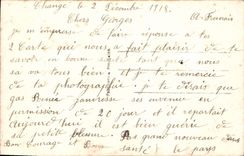 Change le 2 Décembre 1918.
Chers Georges
je m'empresse de faire réponse a tes
2 Carte qui nous a fait plaisir de te
savoir en bonne santé tant que nous
sa va tous bien et je te remercie
de ta photographie. je te dirais que
gas est venue en
permission de 20 jour et il repartait
aujourd'hui il est bien guérie de
sa petite blessure. A grand nouveau
Bon Courage et Bonne santé le pays